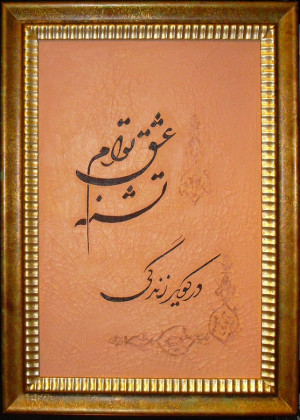 تشنه عشق توام
در کویر زندگی